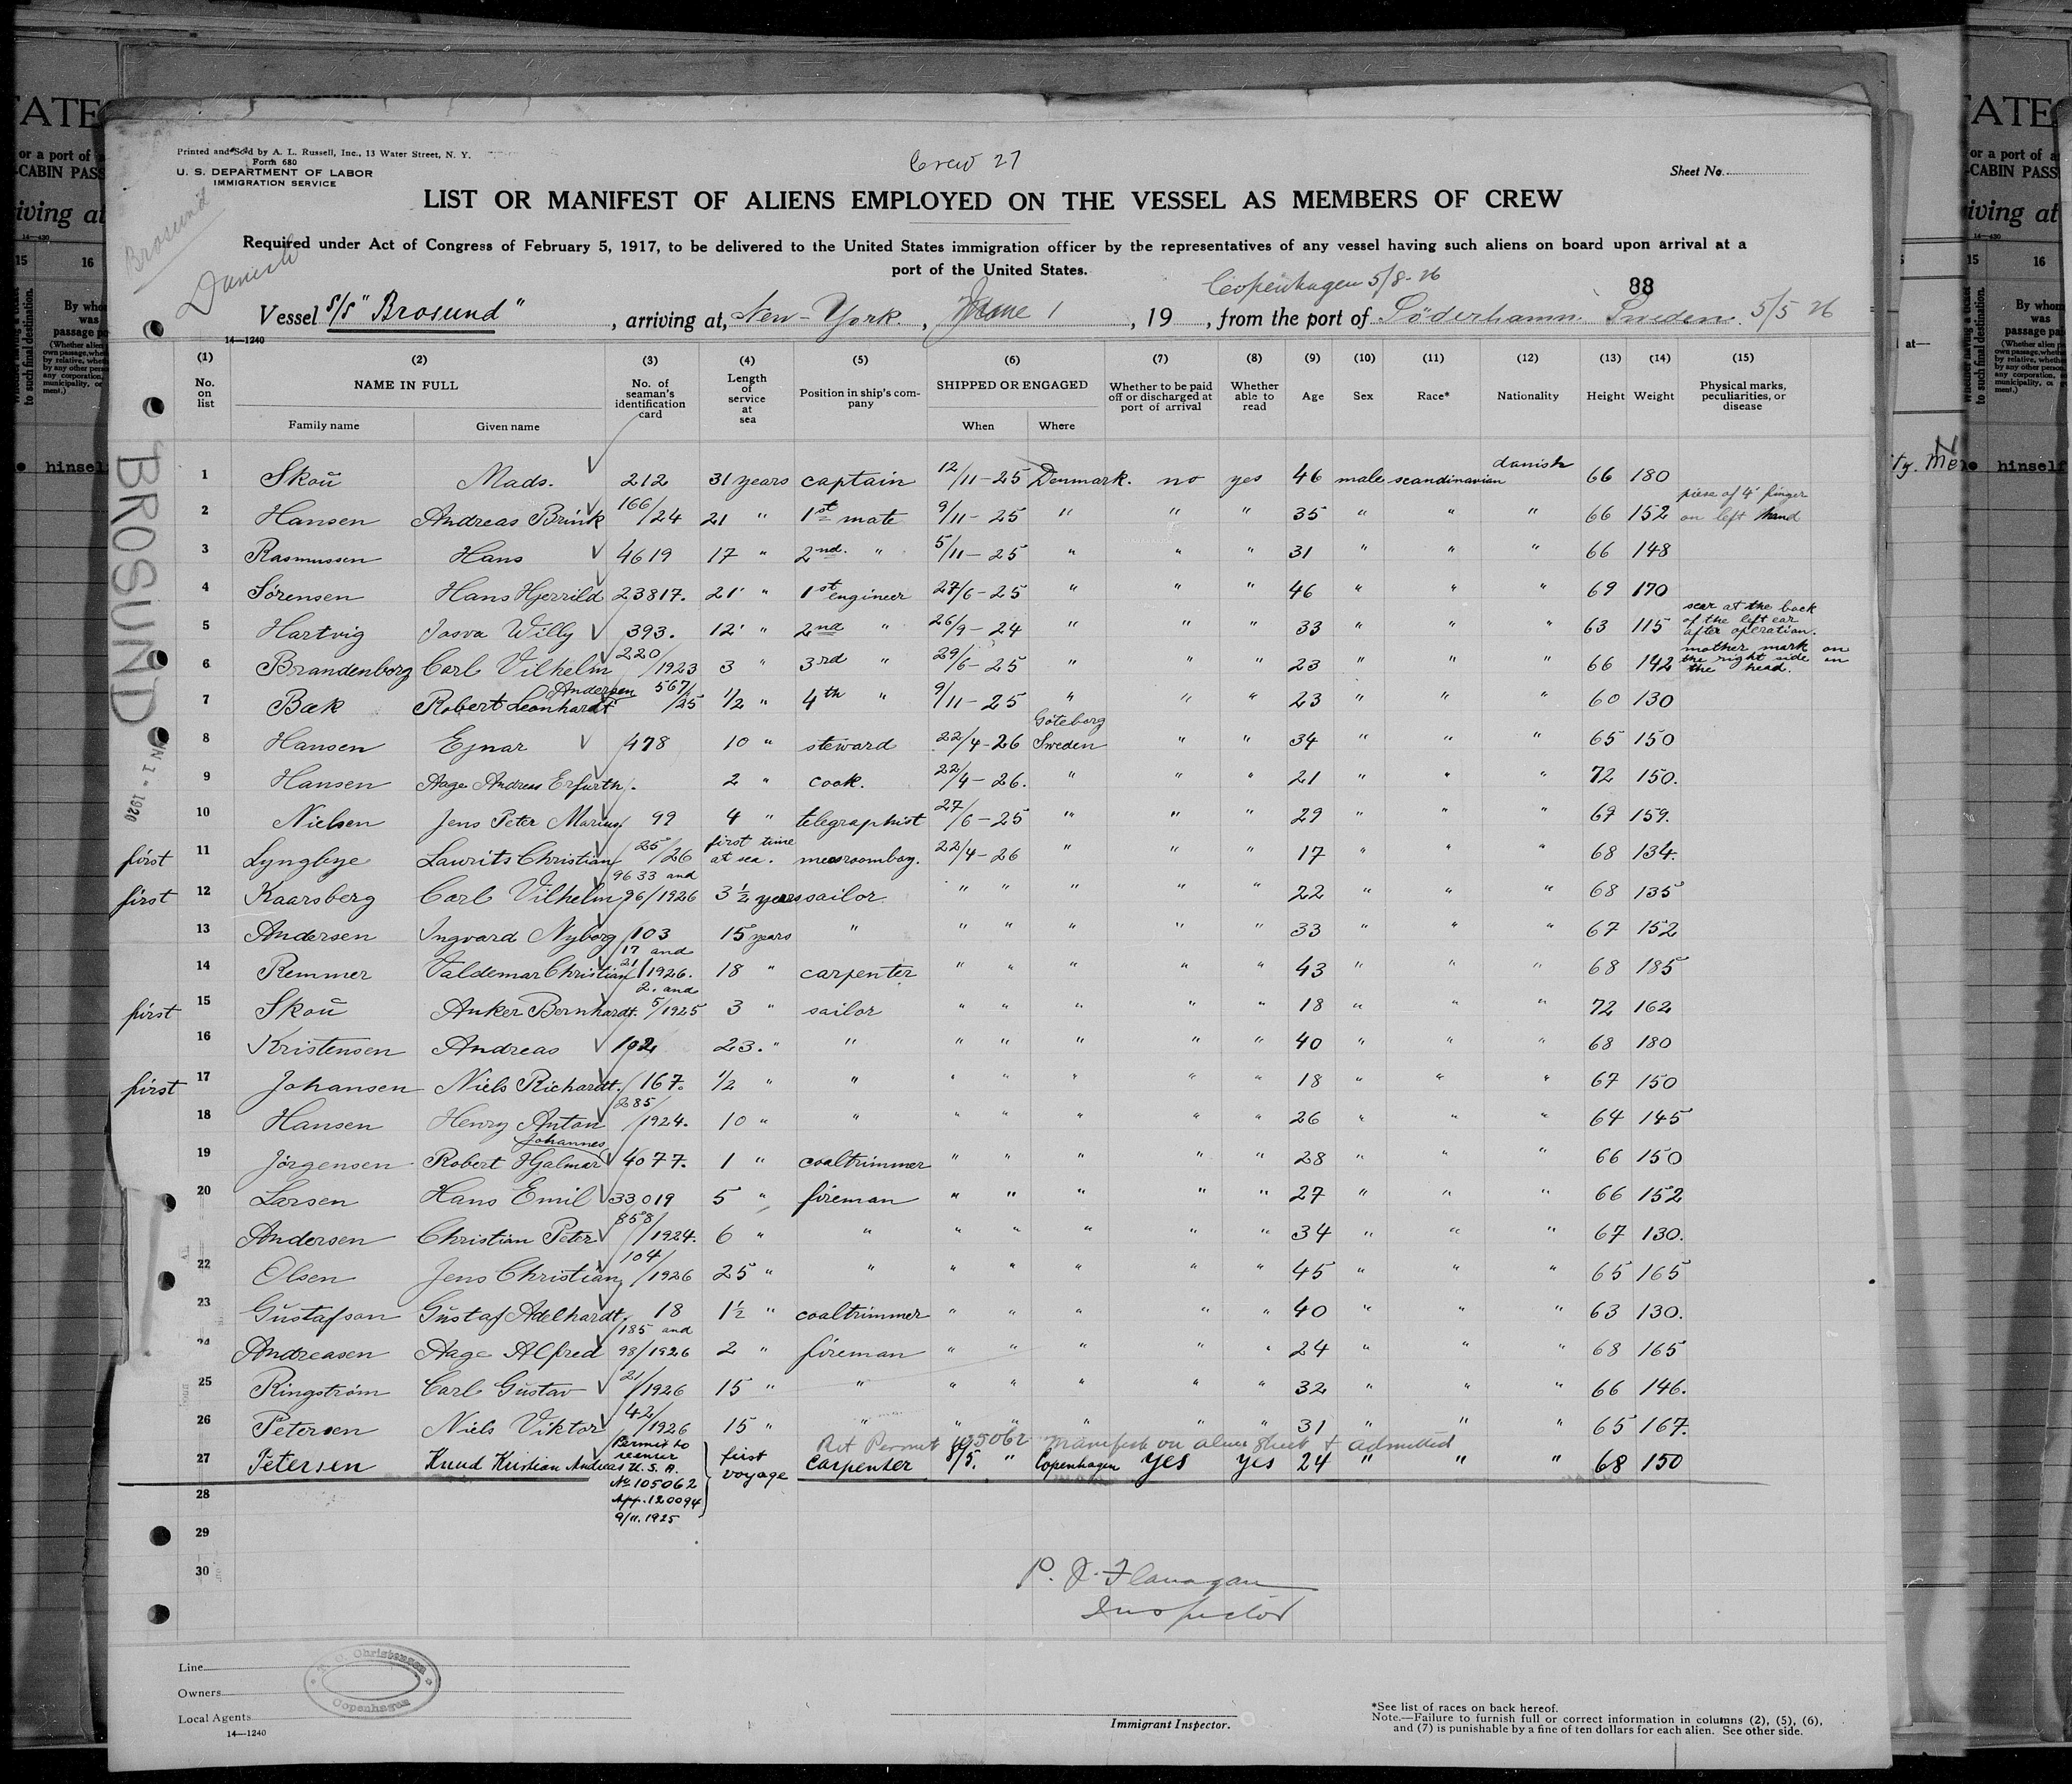 Printed and Sold by A. L. Russell, Inc., 13 Water Street, N. Y.
Form 680
U. S. DEPARTMENT OF LABOR
IMMIGRATION SERVICE
Crew 27
Sheet No.
LIST OR MANIFEST OF ALIENS EMPLOYED ON THE VESSEL AS MEMBERS OF CREW
Required under Act of Congress of February 5, 1917, to be delivered to the United States immigration officer by the representatives of any vessel having such aliens on board upon arrival at a
port of the United States.
Brosund
Danish
Copenhagen 5/8-26
88
Vessel S/S "Brosund", arriving at, New-York, June 1, 19 , from the port of Söderhamn. Sweden. 5/5 26
14—1240
(1) (2) (3) (4) (5) (6) (7) (8) (9) (10) (11) (12) (13) (14) (15)
No. on list
NAME IN FULL
Family name
Given name
No. of seaman's identification card
Length of service at sea
Position in ship's company
SHIPPED OR ENGAGED
When
Where
Whether to be paid off or discharged at port of arrival
Whether able to read
Age
Sex
Race*
Nationality
Height
Weight
Physical marks, peculiarities, or disease
BROSUND
1 Skoŭ Mads. 212 31 years captain 12/11-25 Denmark. no yes 46 male scandinavian danish 66 180
2 Hansen Andreas Brink 166/24 21 " 1st mate 9/11-25 " " " 35 " " " 66 152 piese of 4' finger on left hand
3 Rasmussen Hans 4619 17 " 2nd. " 5/11-25 " " " 31 " " " 66 148
4 Sørensen Hans Hjerrild 23817. 21 " 1st engineer 27/6-25 " " " 46 " " " 69 170
5 Hartvig Josva Willy 393. 12 " 2nd " 26/9-24 " " " 33 " " " 63 115 scar at the back of the left ear after operation.
6 Brandenborg Carl Vilhelm 220/1923 3 " 3rd " 29/6-25 " " " 23 " " " 66 142 mother mark on the right side on the head.
7 Bæk Robert Leonhardt Andersen 567/25 1/2 " 4th " 9/11-25 " " " 23 " " " 60 130
8 Hansen Ejnar 478 10 " steward 22/4-26 Göteborg Sweden " " 34 " " " 65 150
9 Hansen Aage Andreas Erfurth. 2 " cook. 22/4-26. " " " 21 " " " 72 150.
10 Nielsen Jens Peter Marius 99 4 " telegraphist 27/6-25 " " " 29 " " " 67 159.
first 11 Lyngbye Laurits Christian 25/26 first time at sea. messroomboy. 22/4-26 " " " 17 " " " 68 134.
first 12 Kaarsberg Carl Vilhelm 9633 and 96/1926 3 1/2 years sailor " " " " " 22 " " " 68 135
13 Andersen Ingvard Nyborg 103 15 years " " " " " " 33 " " " 67 152
14 Remmer Valdemar Christian 17 and 21/1926. 18 " carpenter " " " " " 43 " " " 68 185
first 15 Skoŭ Anker Bernhardt. 2. and 5/1925 3 " sailor " " " " " 18 " " " 72 162
16 Kristensen Andreas 102 23. " " " " " " " 40 " " " 68 180
first 17 Johansen Niels Richardt. 167. 1/2 " " " " " " " 18 " " " 67 150
18 Hansen Henry Anton 285/1924. 10 " " " " " " " 26 " " " 64 145
19 Jörgensen Robert Hjalmar Johannes 4077. 1 " coaltrimmer " " " " " 28 " " " 66 150
20 Larsen Hans Emil 33019 5 " fireman " " " " " 27 " " " 66 152
Andersen Christian Peter 858/1924. 6 " " " " " " " 34 " " " 67 130.
22 Olsen Jens Christian 104/1926 25 " " " " " " " 45 " " " 65 165
23 Gŭstafson Gŭstaf Adelhardt. 18 1 1/2 " coaltrimmer " " " " " 40 " " " 63 130.
24 Andreasen Aage Alfred 185 and 98/1926 2 " fireman " " " " " 24 " " " 68 165
25 Ringström Carl Gŭstav 21/1926 15 " " " " " " " 32 " " " 66 146.
26 Petersen Niels Viktor 42/1926 15 " " " " " " " 31 " " " 65 167.
Ret Permit 105062 manifest on alien sheet & admitted
27 Petersen Knud Kristian Andreas Permit to reenter U.S.A. No 105062 App. 120094 9/11.1925 first voyage carpenter 8/5. " Copenhagen yes yes 24 " " " 68 150
28
29
30
P. J. Flanagan
Inspector
Line
Owners
Local Agents
14—1240
Christensen
Copenhagen
Immigrant Inspector.
*See list of races on back hereof.
Note.—Failure to furnish full or correct information in columns (2), (5), (6),
and (7) is punishable by a fine of ten dollars for each alien. See other side.